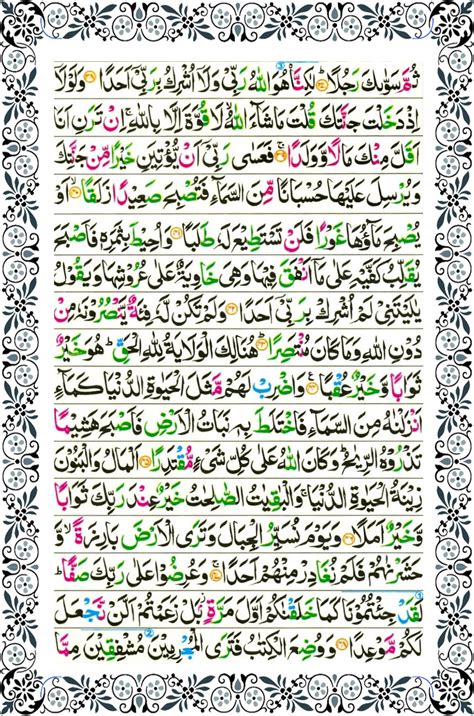 ثُمَّ سَوّٰىكَ رَجُلًا لٰكِنَّا۠ هُوَ اللّٰهُ رَبِّيْ وَلَاۤ اُشْرِكُ بِرَبِّيْۤ اَحَدًا وَلَوْلَاۤ
اِذْ دَخَلْتَ جَنَّتَكَ قُلْتَ مَا شَآءَ اللّٰهُ لَا قُوَّةَ اِلَّا بِاللّٰهِ ۚ اِنْ تَرَنِ اَنَا
اَقَلَّ مِنْكَ مَالًا وَّوَلَدًا فَعَسٰى رَبِّيْۤ اَنْ يُّؤْتِيَنِ خَيْرًا مِّنْ جَنَّتِكَ
وَيُرْسِلَ عَلَيْهَا حُسْبَانًا مِّنَ السَّمَآءِ فَتُصْبِحَ صَعِيْدًا زَلَقًا اَوْ
يُصْبِحَ مَآؤُهَا غَوْرًا فَلَنْ تَسْتَطِيْعَ لَهٗ طَلَبًا وَاُحِيْطَ بِثَمَرِهٖ فَاَصْبَحَ
يُقَلِّبُ كَفَّيْهِ عَلٰى مَاۤ اَنْفَقَ فِيْهَا وَهِيَ خَاوِيَةٌ عَلٰى عُرُوْشِهَا وَيَقُوْلُ
يٰلَيْتَنِيْ لَمْ اُشْرِكْ بِرَبِّيْۤ اَحَدًا وَلَمْ تَكُنْ لَّهٗ فِئَةٌ يَّنْصُرُوْنَهٗ مِنْ
دُوْنِ اللّٰهِ وَمَا كَانَ مُنْتَصِرًا هُنَالِكَ الْوَلَايَةُ لِلّٰهِ الْحَقِّ ؕ هُوَ خَيْرٌ
ثَوَابًا وَّخَيْرٌ عُقْبًا وَاضْرِبْ لَهُمْ مَّثَلَ الْحَيٰوةِ الدُّنْيَا كَمَآءٍ
اَنْزَلْنٰهُ مِنَ السَّمَآءِ فَاخْتَلَطَ بِهٖ نَبَاتُ الْاَرْضِ فَاَصْبَحَ هَشِيْمًا
تَذْرُوْهُ الرِّيٰحُ ؕ وَكَانَ اللّٰهُ عَلٰى كُلِّ شَيْءٍ مُّقْتَدِرًا اَلْمَالُ وَالْبَنُوْنَ
زِيْنَةُ الْحَيٰوةِ الدُّنْيَا ۚ وَالْبٰقِيٰتُ الصّٰلِحٰتُ خَيْرٌ عِنْدَ رَبِّكَ ثَوَابًا
وَّخَيْرٌ اَمَلًا وَيَوْمَ نُسَيِّرُ الْجِبَالَ وَتَرَى الْاَرْضَ بَارِزَةً ۙ وَّ
حَشَرْنٰهُمْ فَلَمْ نُغَادِرْ مِنْهُمْ اَحَدًا وَعُرِضُوْا عَلٰى رَبِّكَ صَفًّا ؕ
لَقَدْ جِئْتُمُوْنَا كَمَا خَلَقْنٰكُمْ اَوَّلَ مَرَّةٍ ۭ بَلْ زَعَمْتُمْ اَلَّنْ نَّجْعَلَ
لَكُمْ مَّوْعِدًا وَوُضِعَ الْكِتٰبُ فَتَرَى الْمُجْرِمِيْنَ مُشْفِقِيْنَ مِمَّا